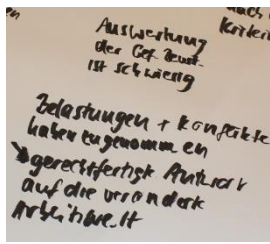 en
nach
Kriteri
Auswertung
der Gef. Beurt.
ist schwierig
Belastungen + Konflikte
haben zugenommen
gerechtfertigt Antwort
auf die veränderte
Arbeitswelt